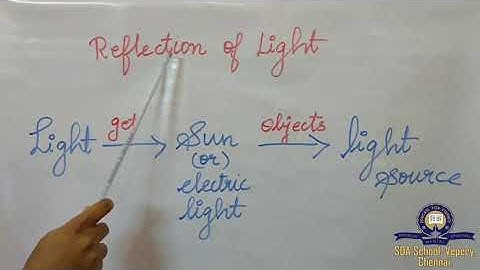 Reflection of Light
Light get → Sun objects → light
(or) source
electric
light
SDA School, Vepery
Chennai